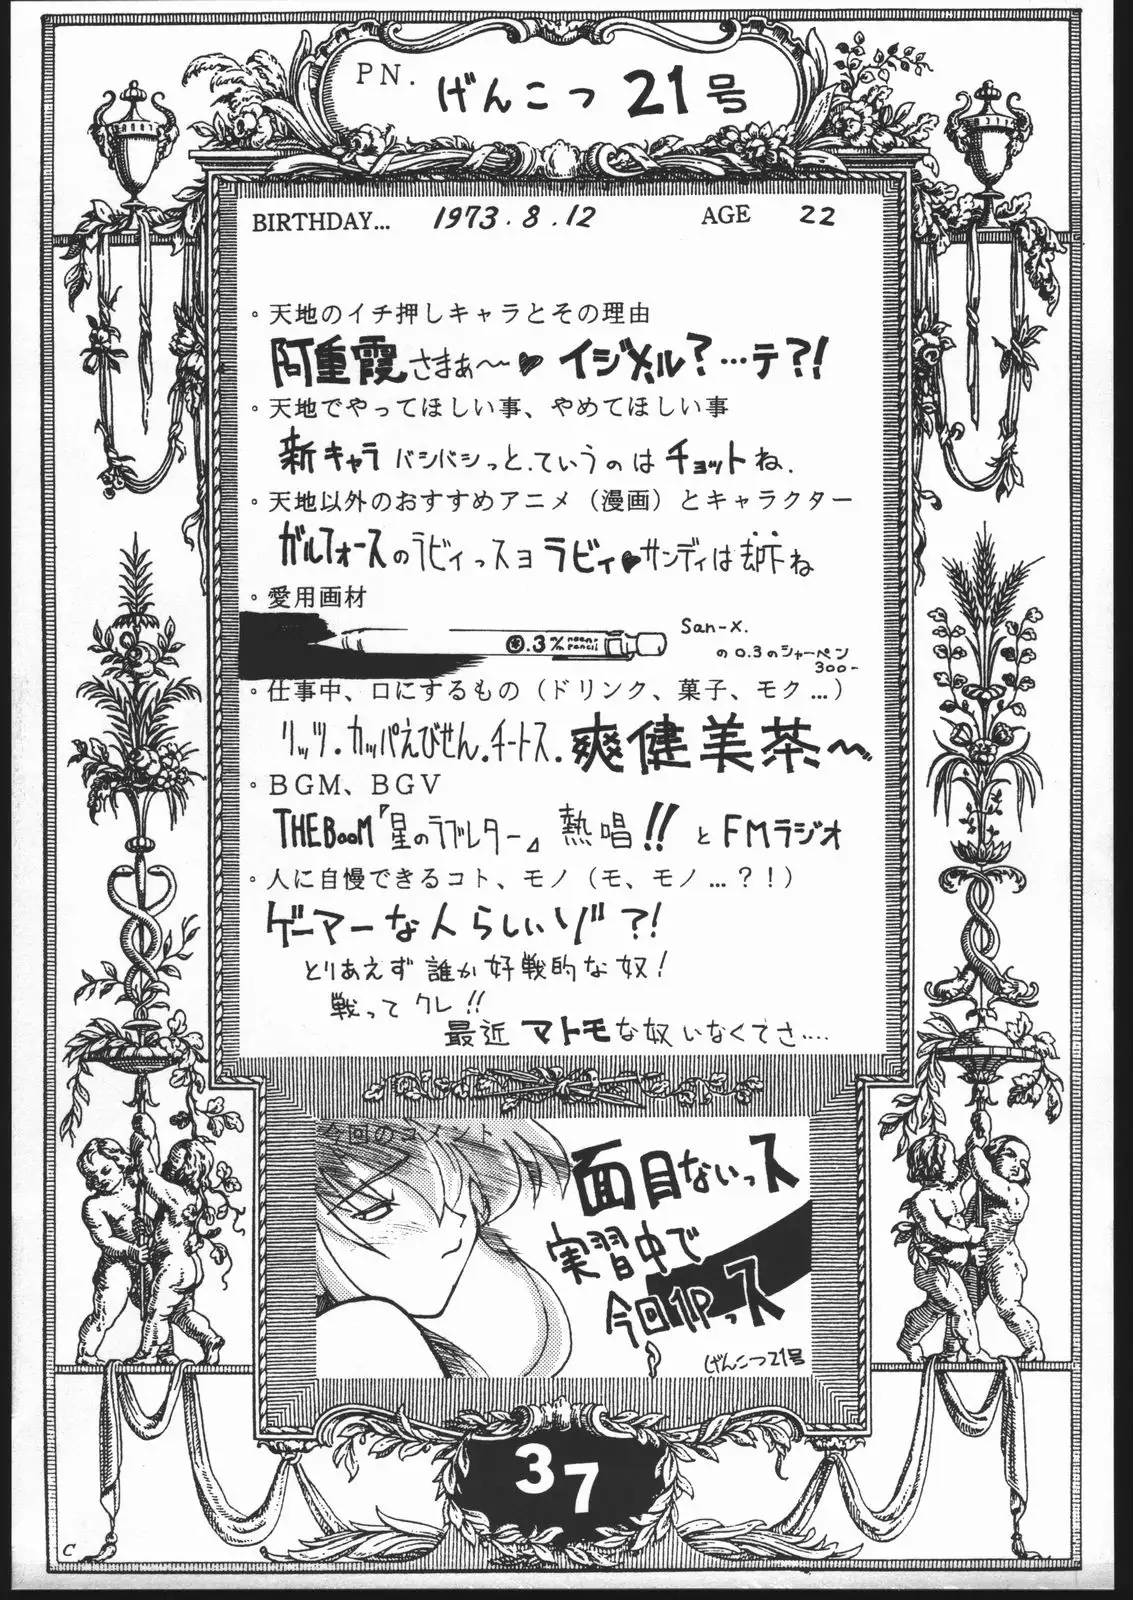 PN. げんこつ 21号
BIRTHDAY... 1973.8.12 AGE 22
。天地のイチ押しキャラとその理由
阿重霞さまぁ〜♥ イジメル?…テ?!
。天地でやってほしい事、やめてほしい事
新キャラ バシバシっと.ていうのは チョットね.
。天地以外のおすすめアニメ（漫画）とキャラクター
ガルフォースのラビィっスョ ラビィ♥サンディは却下ね
。愛用画材
0.3 m/m neen! pencil
San-X.
の0.3のシャーペン
300-
。仕事中、口にするもの（ドリンク、菓子、モク…）
リッツ.カッパえびせん.チートス.爽健美茶〜
。BGM、BGV
THE BooM『星のラブレター』熱唱!! と FMラジオ
。人に自慢できるコト、モノ（モ、モノ…？！）
ゲーマーな人らしいゾ?!
とりあえず 誰か好戦的な奴!
戦って クレ!!
最近 マトモな奴 いなくてさ....
今回のコメント
面目ないっス
実習中で
今回1Pっス
げんこつ21号
37
C